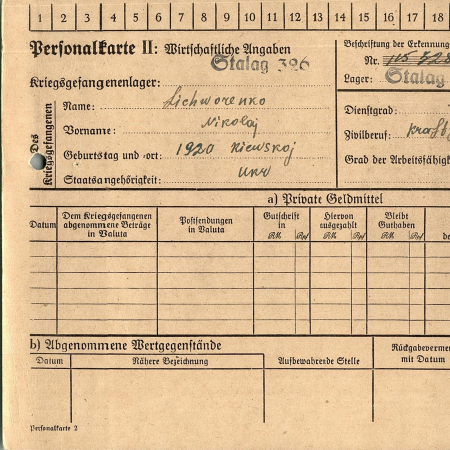 1 2 3 4 5 6 7 8 9 10 11 12 13 14 15 16 17 18
Personalkarte II: Wirtschaftliche Angaben
Beschriftung der Erkennung
Stalag 326
Nr.
Kriegsgefangenenlager:
Lager: Stalag
Des Kriegsgefangenen
Name: Lichworenko
Dienstgrad:
Vorname: Nikolaj
Zivilberuf:
Geburtstag und -ort: 1920 Kiewskoj
Grad der Arbeitsfähigk
Staatsangehörigkeit: Ukr
a) Private Geldmittel
Datum
Dem Kriegsgefangenen abgenommene Beträge in Valuta
Postsendungen in Valuta
Gutschrift in
RM Rpf
Hiervon ausgezahlt
RM Rpf
Bleibt Guthaben
RM Rpf
de
b) Abgenommene Wertgegenstände
Datum
Nähere Bezeichnung
Aufbewahrende Stelle
Rückgabeverme
mit Datum
Personalkarte 2